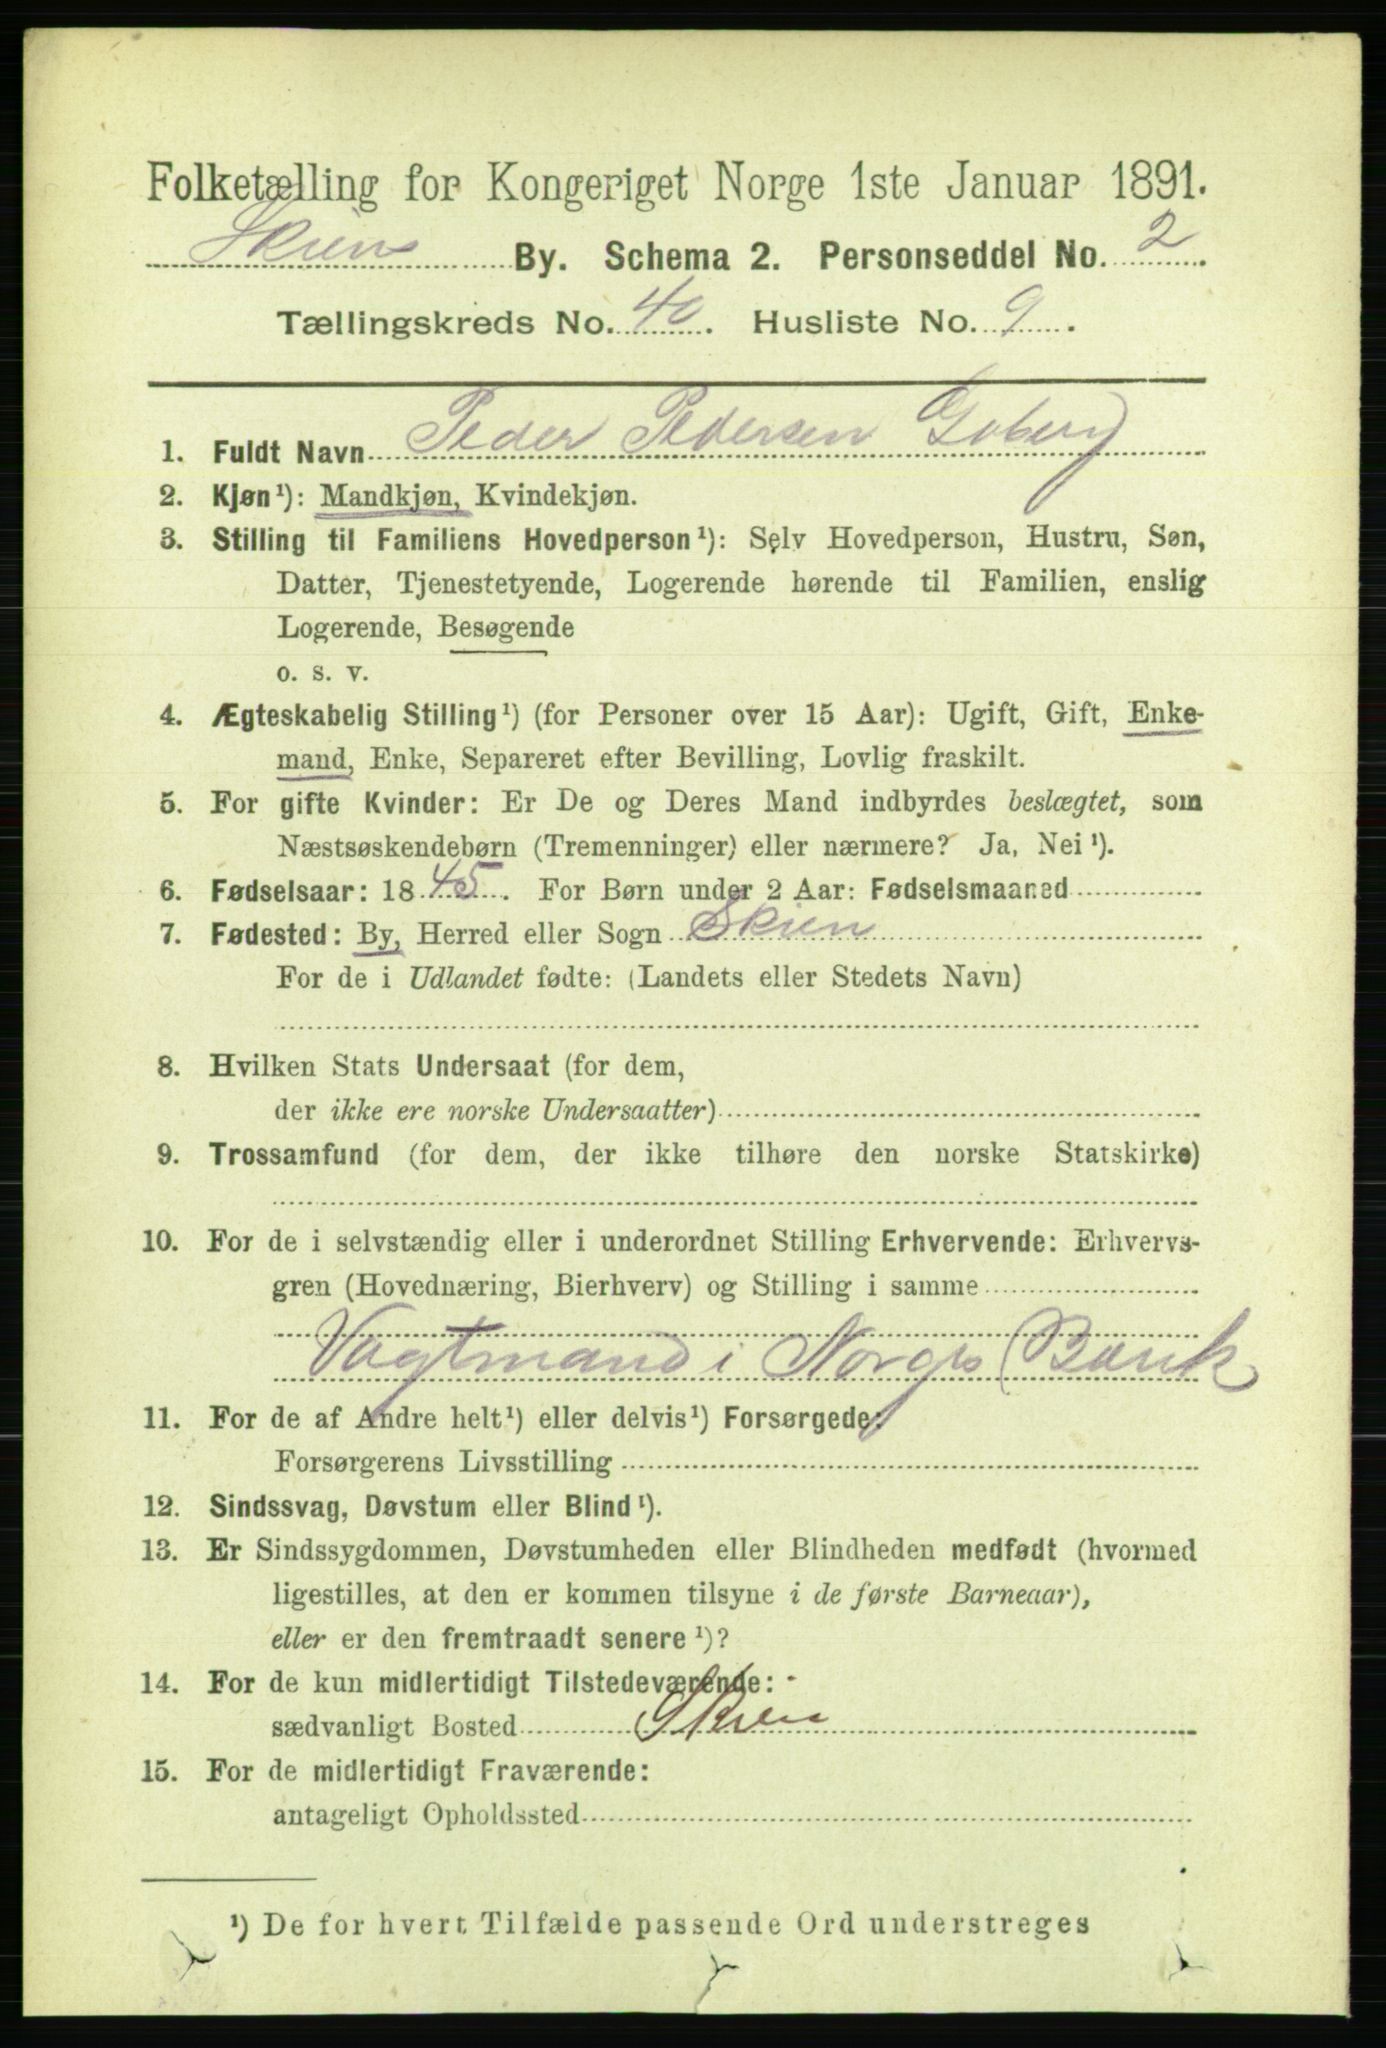 Folketælling for Kongeriget Norge 1ste Januar 1891.
Skien By. Schema 2. Personseddel No. 2
Tællingskreds No. 40. Husliste No. 9.
1. Fuldt Navn Peder Pedersen
2. Kjøn¹): Mandkjøn, Kvindekjøn.
3. Stilling til Familiens Hovedperson¹): Selv Hovedperson, Hustru, Søn,
Datter, Tjenestetyende, Logerende hørende til Familien, enslig
Logerende, Besøgende
o. s. v.
4. Ægteskabelig Stilling¹) (for Personer over 15 Aar): Ugift, Gift, Enke-
mand, Enke, Separeret efter Bevilling, Lovlig fraskilt.
5. For gifte Kvinder: Er De og Deres Mand indbyrdes beslægtet, som
Næstsøskendebørn (Tremenninger) eller nærmere? Ja, Nei¹).
6. Fødselsaar: 1845. For Børn under 2 Aar: Fødselsmaaned
7. Fødested: By, Herred eller Sogn Skien
For de i Udlandet fødte: (Landets eller Stedets Navn)
8. Hvilken Stats Undersaat (for dem,
der ikke ere norske Undersaatter)
9. Trossamfund (for dem, der ikke tilhøre den norske Statskirke)
10. For de i selvstændig eller i underordnet Stilling Erhvervende: Erhvervs-
gren (Hovednæring, Bierhverv) og Stilling i samme
Vagtmand i Norges Bank
11. For de af Andre helt¹) eller delvis¹) Forsørgede:
Forsørgerens Livsstilling
12. Sindssvag, Døvstum eller Blind¹).
13. Er Sindssygdommen, Døvstumheden eller Blindheden medfødt (hvormed
ligestilles, at den er kommen tilsyne i de første Barneaar),
eller er den fremtraadt senere¹)?
14. For de kun midlertidigt Tilstedeværende:
sædvanligt Bosted Skien
15. For de midlertidigt Fraværende:
antageligt Opholdssted
¹) De for hvert Tilfælde passende Ord understreges